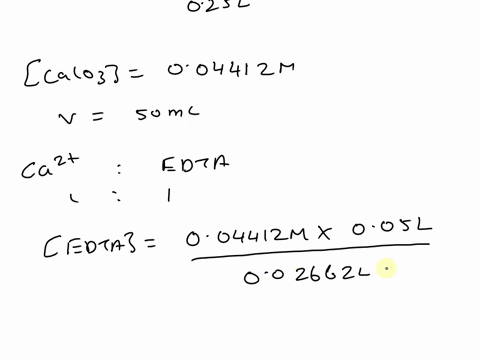 0.25L
[CaCO3] = 0.04412M
V = 50mL
Ca2+ : EDTA
1 : 1
[EDTA] = 0.04412M x 0.05L
0.02662L